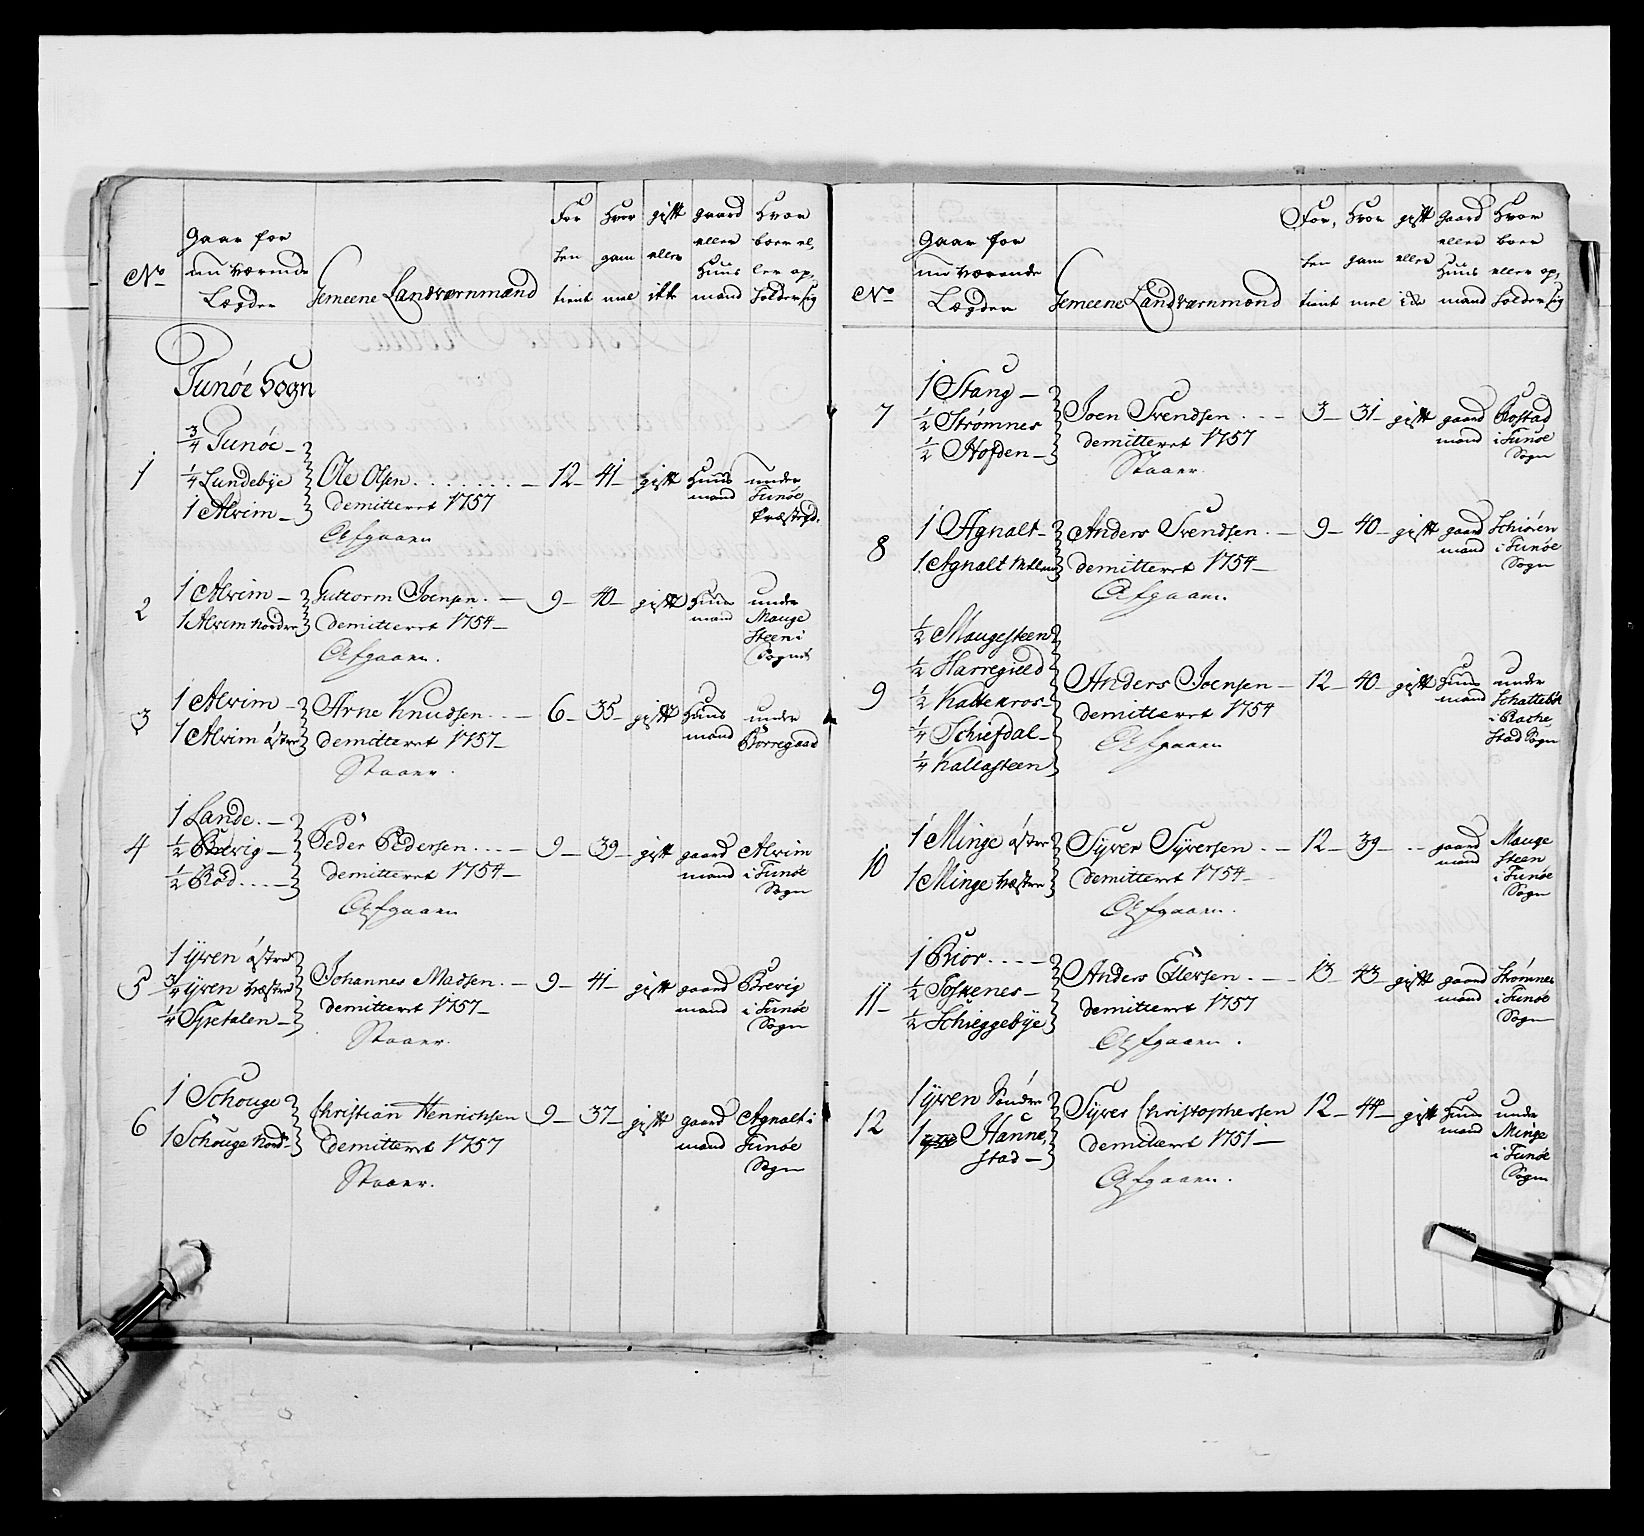 No
Gaar for
nu værende
Lægder
Gemeene Landværnmænd
For
hen
tient
Hvor
gam
mel
gift
eller
ikke
gaard
eller
Huus
mand
Hvor
boer el,
ler op,
holder sig
Tunøe Sogn
1
3/4 Tunøe
1/4 Lundebye
1 Alvim
Ole Olsen
demitteret 1757
Afgaaer
12 41 gift
Huus
mand
under
Tunøe
Præstegd.
2
1 Alvim
1 Alvim Nordre
Guttorm Joensen
demitteret 1754
Afgaaer.
9 40 gift
Huus
mand
under
Mauge
steen i
Sognet
3
1 Alvim
1 Alvim østre
Arne Knudsen
demitteret 1757
Staaer.
6 35 gift
Huus
mand
under
Borregaad
4
1 Lande
1/2 Brevig
1/2 Rød
Peder Pedersen
demitteret 1754
Afgaaer
9 39 gift
gaard
mand
Alvim
i Tunøe
Sogn
5
1 Yven østre
3/4 Yven Væstre
1/4 Spetalen
Johannes Madsen
demitteret 1757
Staaer.
9 41 gift
gaard
mand
Brevig
i Tunøe
Sogn
6
1 Schouge
1 Schouge Nord
Christian Henrichsen
demitteret 1757
Staaer.
9 37 gift
gaard
mand
Agnalt i
Tunøe
Sogn
No
Gaar for
nu værende
Lægder
Gemeene Landværnmænd
For,
hen
tient
Hvor
gam
mel
gift
eller
gaard
eller
Huus
mand
Hvor
boer
eller op,
holder sig
7
1 Stang
1/2 Strømnes
1/2 Hofden
Joen Svendsen
demitteret 1757
Staaer.
3 31 gift
gaard
mand
Rostad
i Tunøe
Sogn
8
1 Agnalt
1 Agnalt
Anders Svendsen
demitteret 1754
Afgaaer.
9 40 gift
gaard
mand
Schiøren
i Tunøe
Sogn
9
1/2 Maugesteen
1/2 Harregield
1/2 Kattekros
1/4 Schiefdal
1/4 Kallasteen
Anders Joensen
demitteret 1754
Afgaaer
12 40 gift
Huus
mand
under
i Rache
stad Sogn
10
1 Minge østre
1 Minge Væstre
Syver Syversen
demitteret 1754
Afgaaer.
12 39
gaard
mand
Mauge
steen
i Tunøe
Sogn
11
1 Rior
1/2 Toskenes
1/2 Schieggebye
Anders Ellersen
demitteret 1757
Afgaaer.
13 43 gift
gaard
mand
Strømnes
i Tunøe
Sogn
12
1 Yven Søndre
1 Hanne,
stad
Syver Christophersen
demitteret 1751
Afgaaer.
12 44 gift
Huus
mand
under
Minge
i Tunøe
Sogn